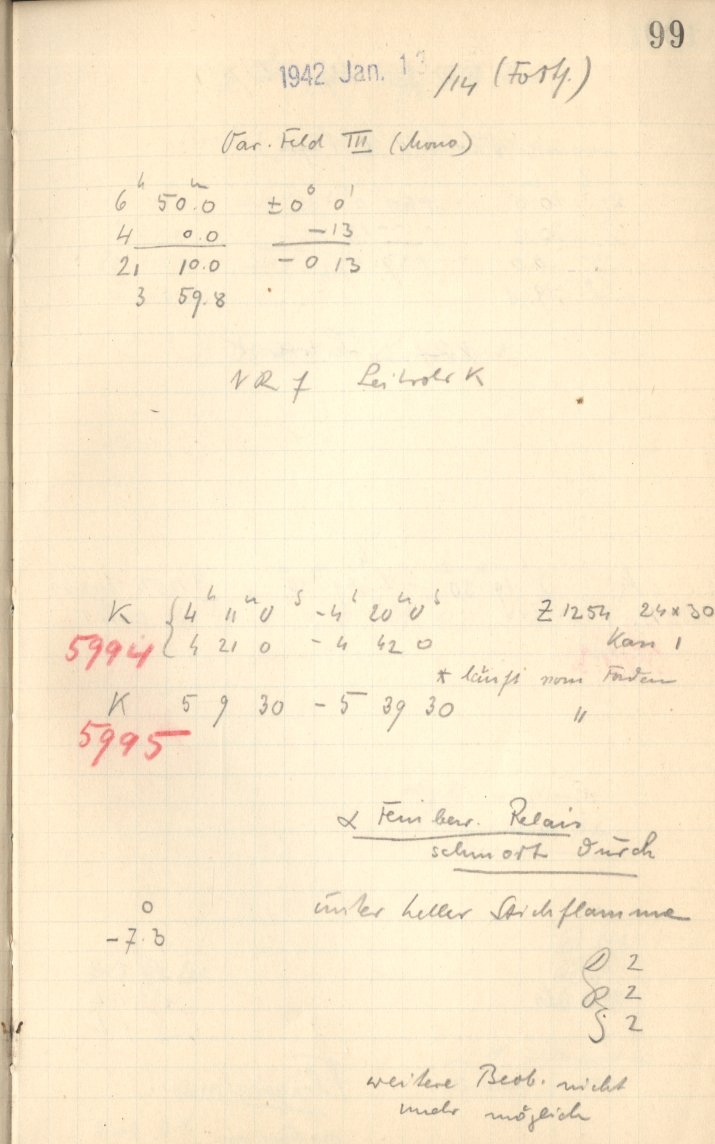 99
1942 Jan. 13 /14 (Forts.)
Var. Feld III (Mono)
6ʰ 50.0ᵐ ±0° 0'
4 0.0 -13
21 10.0 -0 13
3 59.8
NR f Leitrohr K
K 4ʰ 11ᵐ 0ˢ -4ʰ 20ᵐ 0ˢ Z 1254 24x30
5994 4 21 0 - 4 42 0 Kass 1
* läuft vom Faden
K 5 9 30 - 5 39 30 "
5995
α Feinbew. Relais
schmort durch
0 unter heller Stichflamme
-7.3
D 2
R 2
S 2
weitere Beob. nicht
mehr möglich